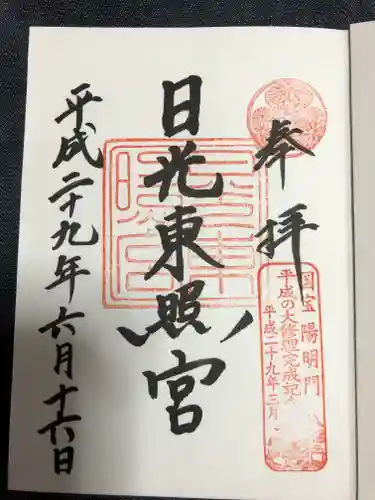 奉拝
国宝 陽明門
平成の大修理完成記
平成二十九年三月
日光東照宮
平成二十九年六月十六日